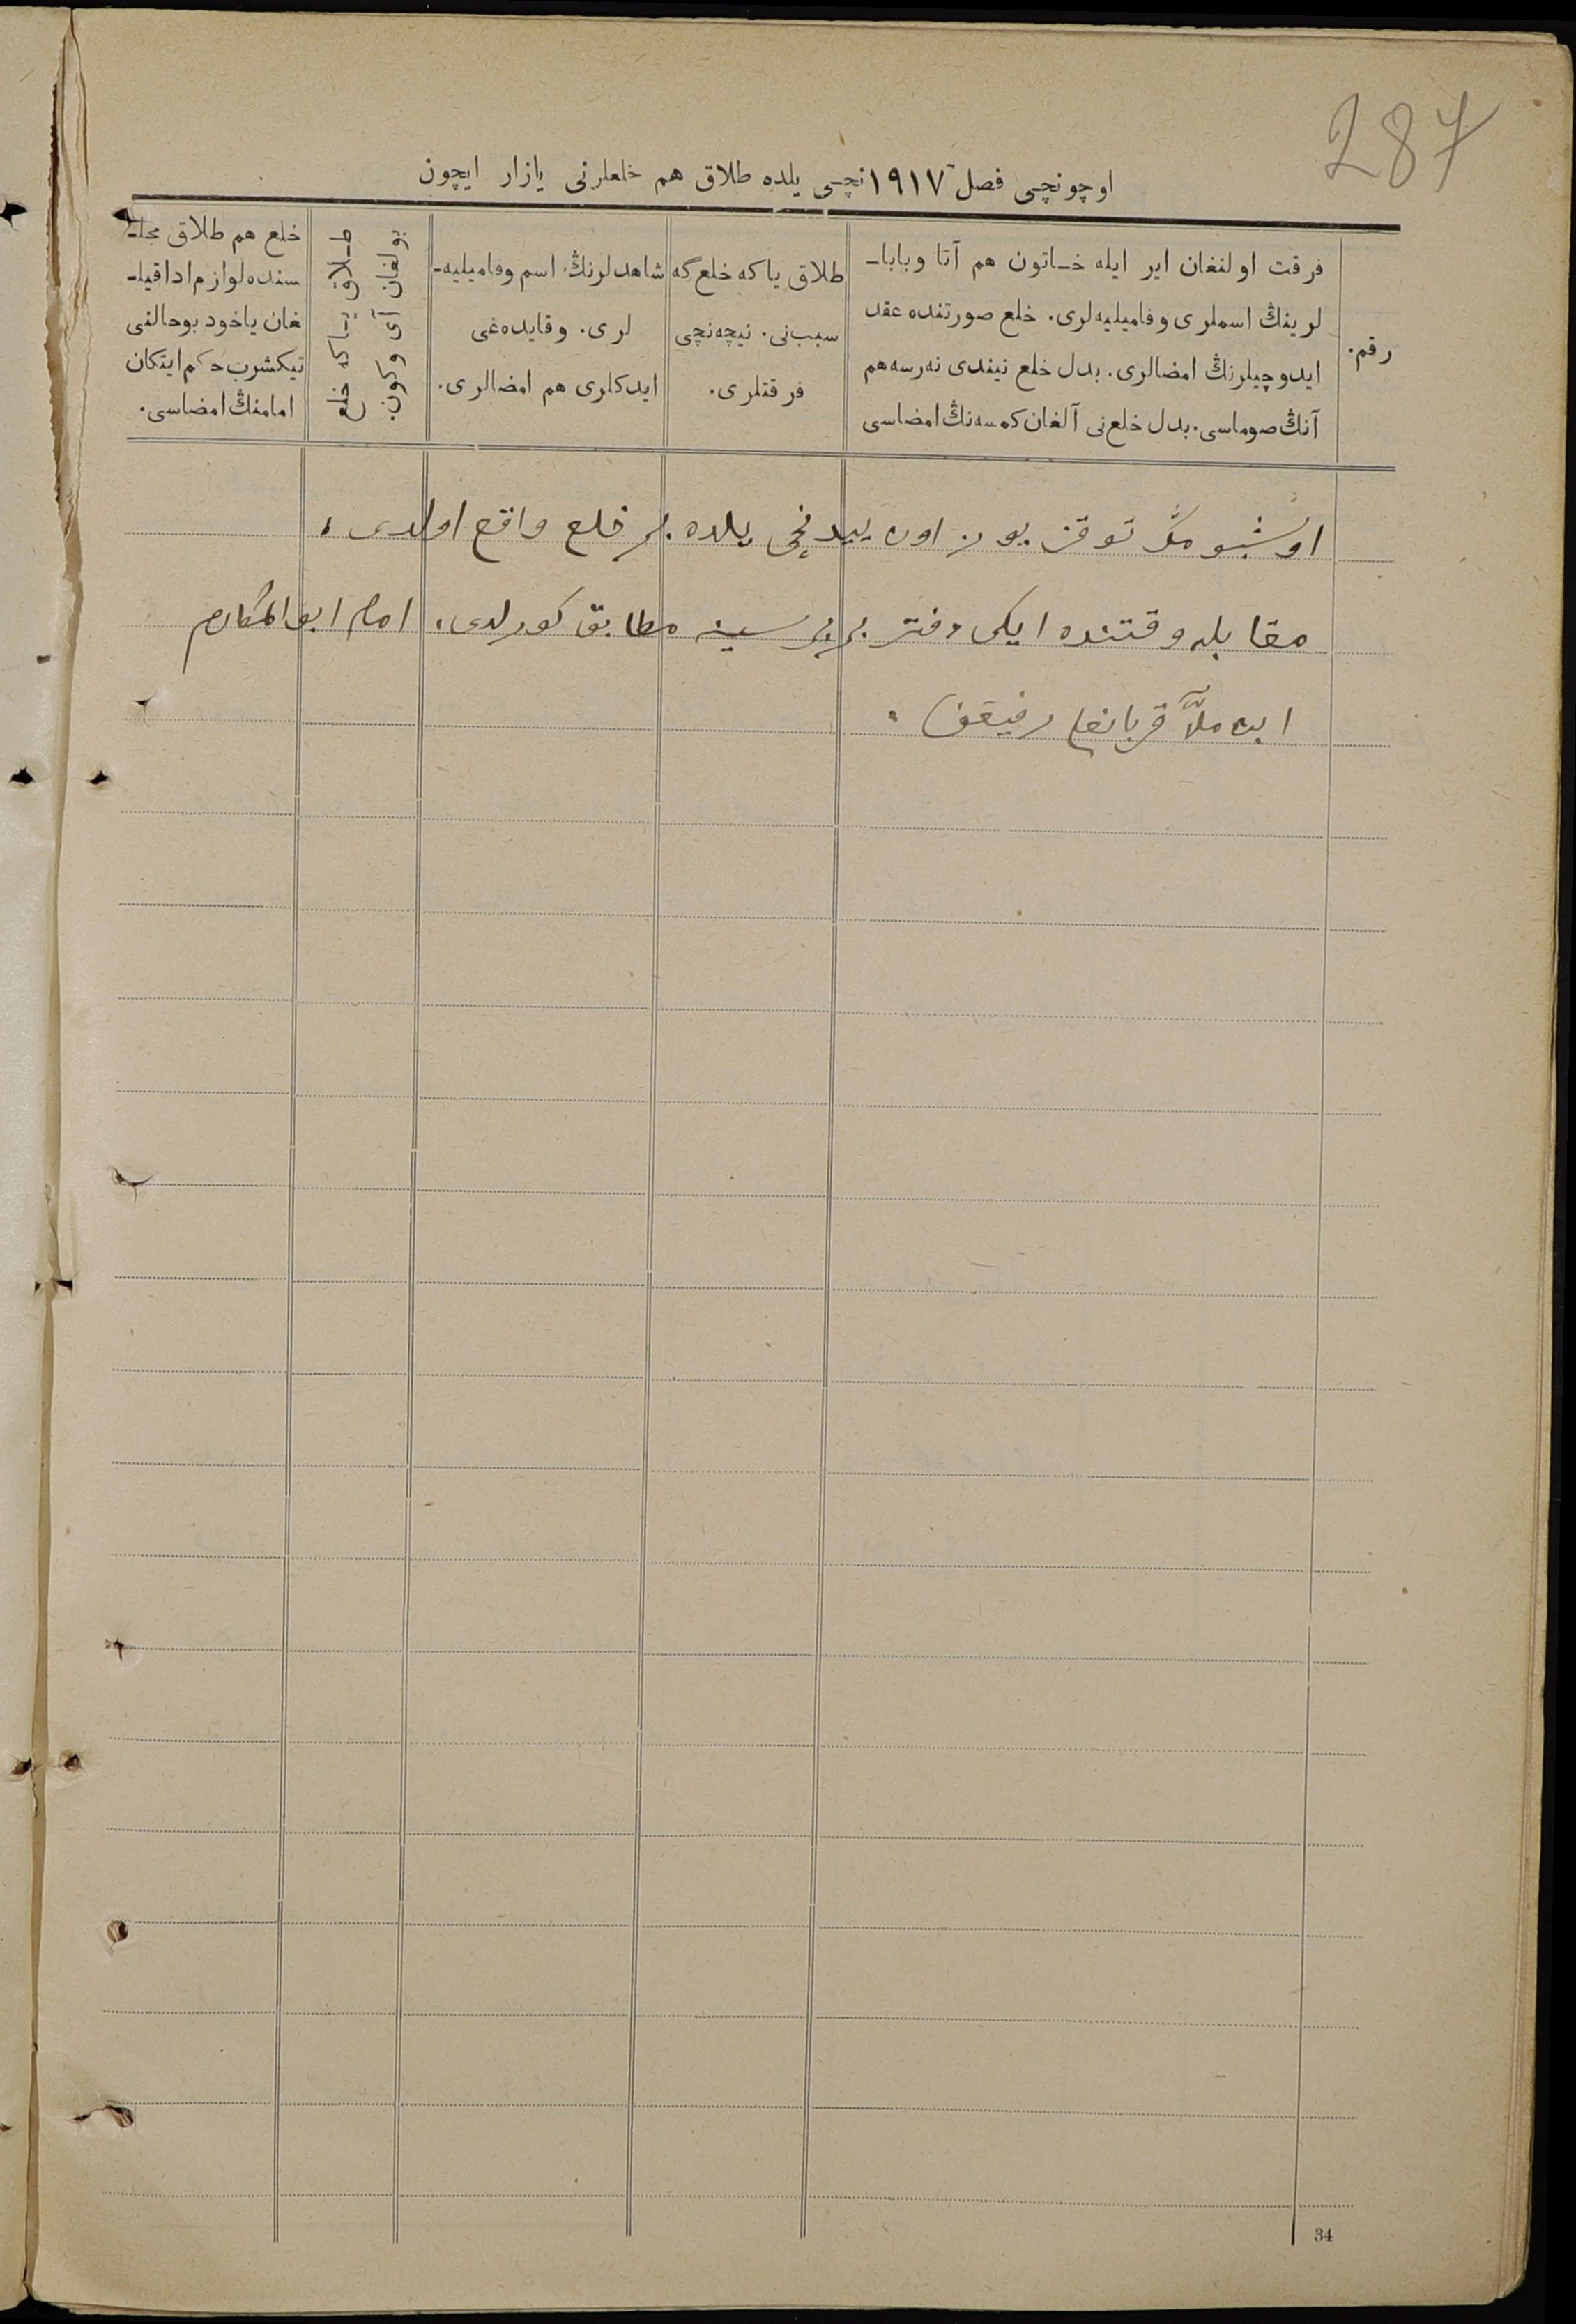 287
اوچونچی فصل ١٩١٧نچی یلده طلاق هم خلعلرنی یازار ایچون
رقم.
فرقت اولنغان ایر ایله خاتون هم آتا وبابا-
لرینڭ اسملری وفامیلیه‌لری. خلع صورتنده عقد
ایدوچیلرنڭ امضالری. بدل خلع نیندی نه‌رسه هم
آنڭ صوماسی. بدل خلع‌نی آلغان کمسه‌نڭ امضاسی
طلاق یاکه خلع‌گه
سبب‌نی. نیچه‌نچی
فرقتلری.
شاهدلرنڭ اسم وفامیلیه-
لری. وقایده‌غی
ایدکلری هم امضالری.
طلاق یاکه خلع
بولغان آی وکون.
خلع هم طلاق مجلـ-
سنده لوازم ادا قیلـ-
غان یاخود بوحالنی
تیکشرب حکم ایتکان
امامنڭ امضاسی.
اوشبو مڭ توقز یوز اون ییدنچی یلده بر خلع واقع اولدی،
مقابله وقتنده ایکی دفتر بر برسینه مطابق کورلدی، امام ابو المکارم
ابن ملّا قربانغلی رفیقف.
34